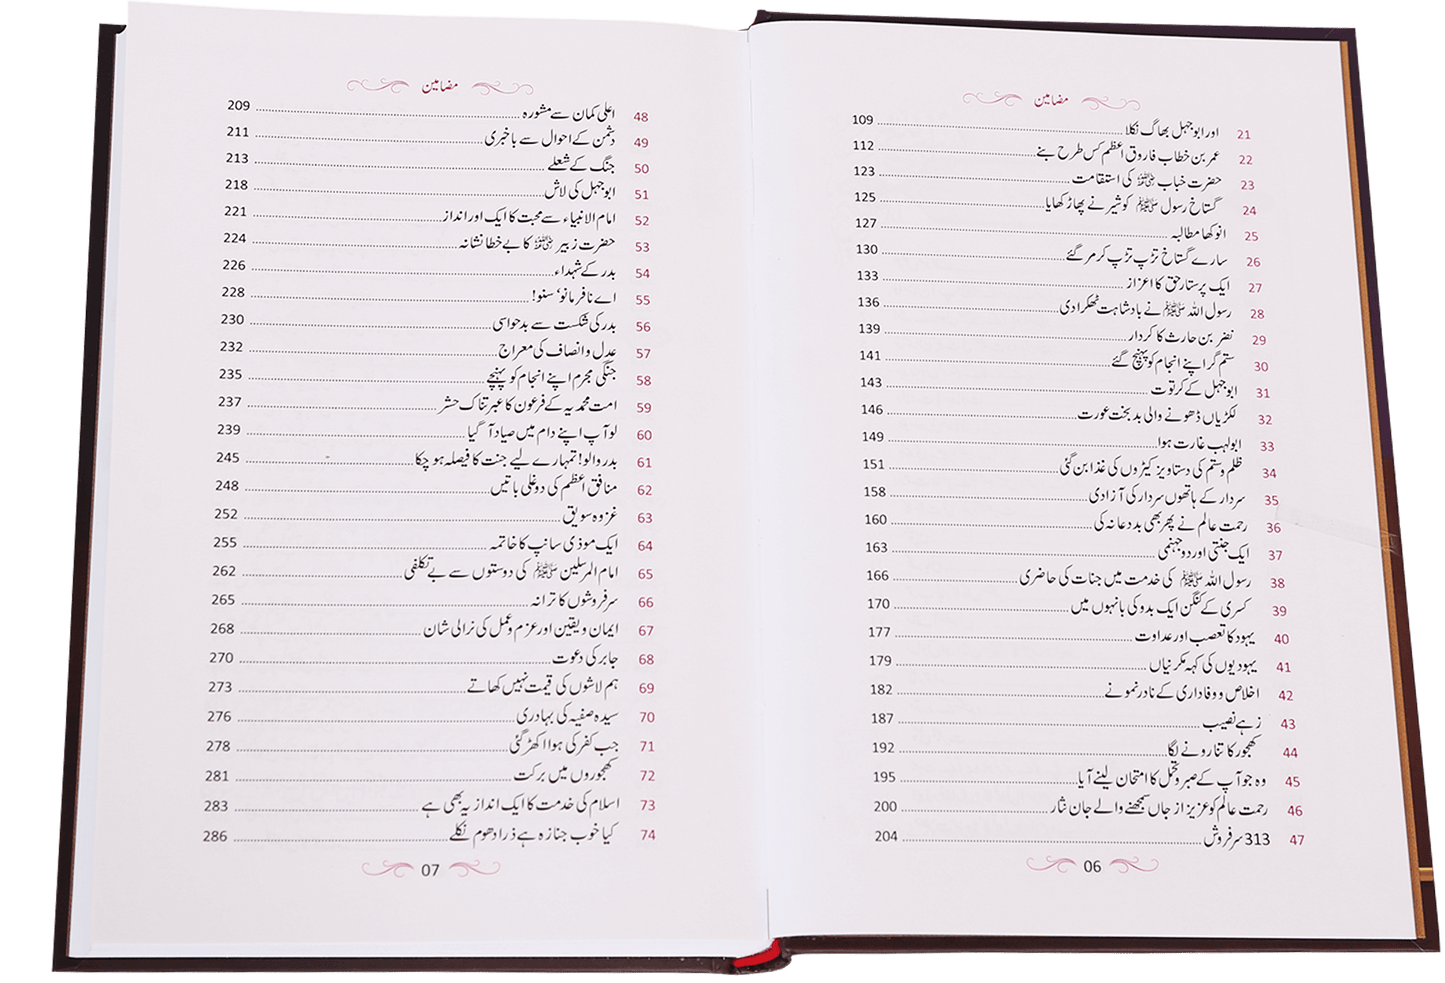 مضامین
21 اور ابو جہل بھاگ نکلا 109
22 عمر بن خطاب فاروق اعظم کس طرح بنے 112
23 حضرت خباب رضی اللہ عنہ کی استقامت 123
24 گستاخ رسول ﷺ کو شیر نے پھاڑ کھایا 125
25 انوکھا مطالبہ 127
26 سارے گستاخ تڑپ تڑپ کر مر گئے 130
27 ایک پرستار حق کا اعزاز 133
28 رسول اللہ ﷺ نے بادشاہت ٹھکرا دی 136
29 نضر بن حارث کا کردار 139
30 ستم گر اپنے انجام کو پہنچ گئے 141
31 ابو جہل کے کرتوت 143
32 لکڑیاں ڈھونے والی بدبخت عورت 146
33 ابولہب غارت ہوا 149
34 ظلم و ستم کی دستاویز کیڑوں کی غذا بن گئی 151
35 سردار کے ہاتھوں سردار کی آزادی 158
36 رحمت عالم نے پھر بھی بددعا نہ کی 160
37 ایک جنتی اور دو جہنمی 163
38 رسول اللہ ﷺ کی خدمت میں جنات کی حاضری 166
39 کسریٰ کے کنگن ایک بدو کی بانہوں میں 170
40 یہود کا تعصب اور عداوت 177
41 یہودیوں کی کہہ مکرنیاں 179
42 اخلاص و وفاداری کے نادر نمونے 182
43 زہے نصیب 187
44 کھجور کا تنا رونے لگا 192
45 وہ جو آپ کے صبر و تحمل کا امتحان لینے آیا 195
46 رحمت عالم کو عزیز از جاں سمجھنے والے جان نثار 200
47 313 سرفروش 204
06
مضامین
48 اعلی کمان سے مشورہ 209
49 دشمن کے احوال سے باخبری 211
50 جنگ کے شعلے 213
51 ابو جہل کی لاش 218
52 امام الانبیاء سے محبت کا ایک اور انداز 221
53 حضرت زبیر رضی اللہ عنہ کا بے خطا نشانہ 224
54 بدر کے شہداء 226
55 اے نافرمانو' سنو! 228
56 بدر کی شکست سے بدحواسی 230
57 عدل و انصاف کی معراج 232
58 جنگی مجرم اپنے انجام کو پہنچے 235
59 امت محمدیہ کے فرعون کا عبرتناک حشر 237
60 لو آپ اپنے دام میں صیاد آ گیا 239
61 بدر والو! تمہارے لیے جنت کا فیصلہ ہو چکا 245
62 منافق اعظم کی دوغلی باتیں 248
63 غزوہ سویق 252
64 ایک موذی سانپ کا خاتمہ 255
65 امام المرسلین ﷺ کی دوستوں سے بے تکلفی 262
66 سرفروشوں کا ترانہ 265
67 ایمان و یقین اور عزم و عمل کی نرالی شان 268
68 جابر کی دعوت 270
69 ہم لاشوں کی قیمت نہیں کھاتے 273
70 سیدہ صفیہ کی بہادری 276
71 جب کفر کی ہوا اکھڑ گئی 278
72 کھجوروں میں برکت 281
73 اسلام کی خدمت کا ایک انداز یہ بھی ہے 283
74 کیا خوب جنازہ ہے ذرا دھوم نکلے 286
07